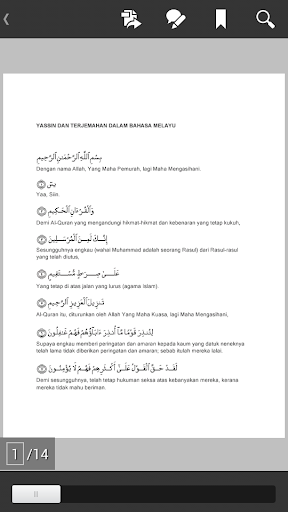 YASSIN DAN TERJEMAHAN DALAM BAHASA MELAYU
بِسْمِ ٱللَّهِ ٱلرَّحْمَـٰنِ ٱلرَّحِيمِ
Dengan nama Allah, Yang Maha Pemurah, lagi Maha Mengasihani.
يسٓ
Yaa, Siin.
وَٱلْقُرْءَانِ ٱلْحَكِيمِ
Demi Al-Quran yang mengandungi hikmat-hikmat dan kebenaran yang tetap kukuh,
إِنَّكَ لَمِنَ ٱلْمُرْسَلِينَ
Sesungguhnya engkau (wahai Muhammad adalah seorang Rasul) dari Rasul-rasul
yang telah diutus,
عَلَىٰ صِرَٰطٍ مُّسْتَقِيمٍ
Yang tetap di atas jalan yang lurus (agama Islam).
تَنزِيلَ ٱلْعَزِيزِ ٱلرَّحِيمِ
Al-Quran itu, diturunkan oleh Allah Yang Maha Kuasa, lagi Maha Mengasihani,
لِتُنذِرَ قَوْمًا مَّآ أُنذِرَ ءَابَآؤُهُمْ فَهُمْ غَـٰفِلُونَ
Supaya engkau memberi peringatan dan amaran kepada kaum yang datuk neneknya
telah lama tidak diberikan peringatan dan amaran; sebab itulah mereka lalai.
لَقَدْ حَقَّ ٱلْقَوْلُ عَلَىٰٓ أَكْثَرِهِمْ فَهُمْ لَا يُؤْمِنُونَ
Demi sesungguhnya, telah tetap hukuman seksa atas kebanyakan mereka, kerana
mereka tidak mahu beriman
1 /14